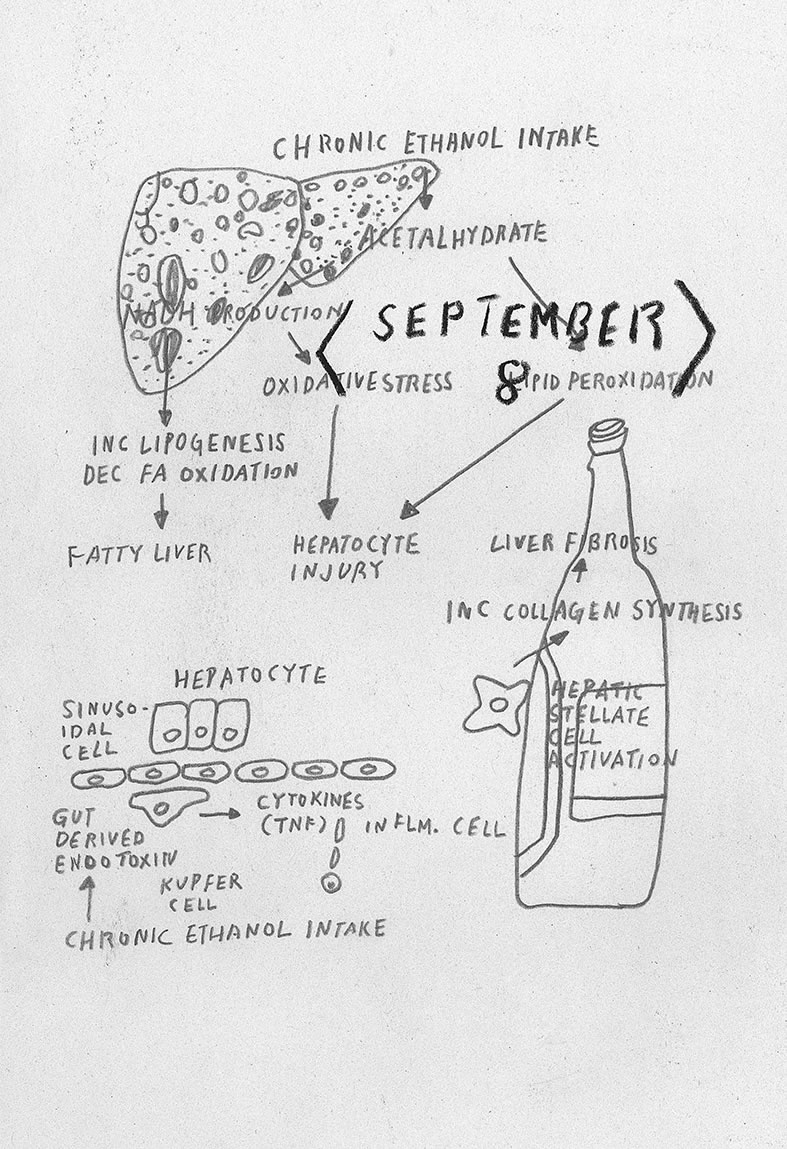 CHRONIC ETHANOL INTAKE
ACETALHYDRATE
NADH PRODUCTION
< SEPTEMBER >
8
OXIDATIVE STRESS
LIPID PEROXIDATION
INC LIPOGENESIS
DEC FA OXIDATION
FATTY LIVER
HEPATOCYTE
INJURY
LIVER FIBROSIS
INC COLLAGEN SYNTHESIS
HEPATIC
STELLATE
CELL
ACTIVATION
HEPATOCYTE
SINUSO-
IDAL
CELL
GUT
DERIVED
ENDOTOXIN
CYTOKINES
(TNF)
INFLM. CELL
KUPFER
CELL
CHRONIC ETHANOL INTAKE